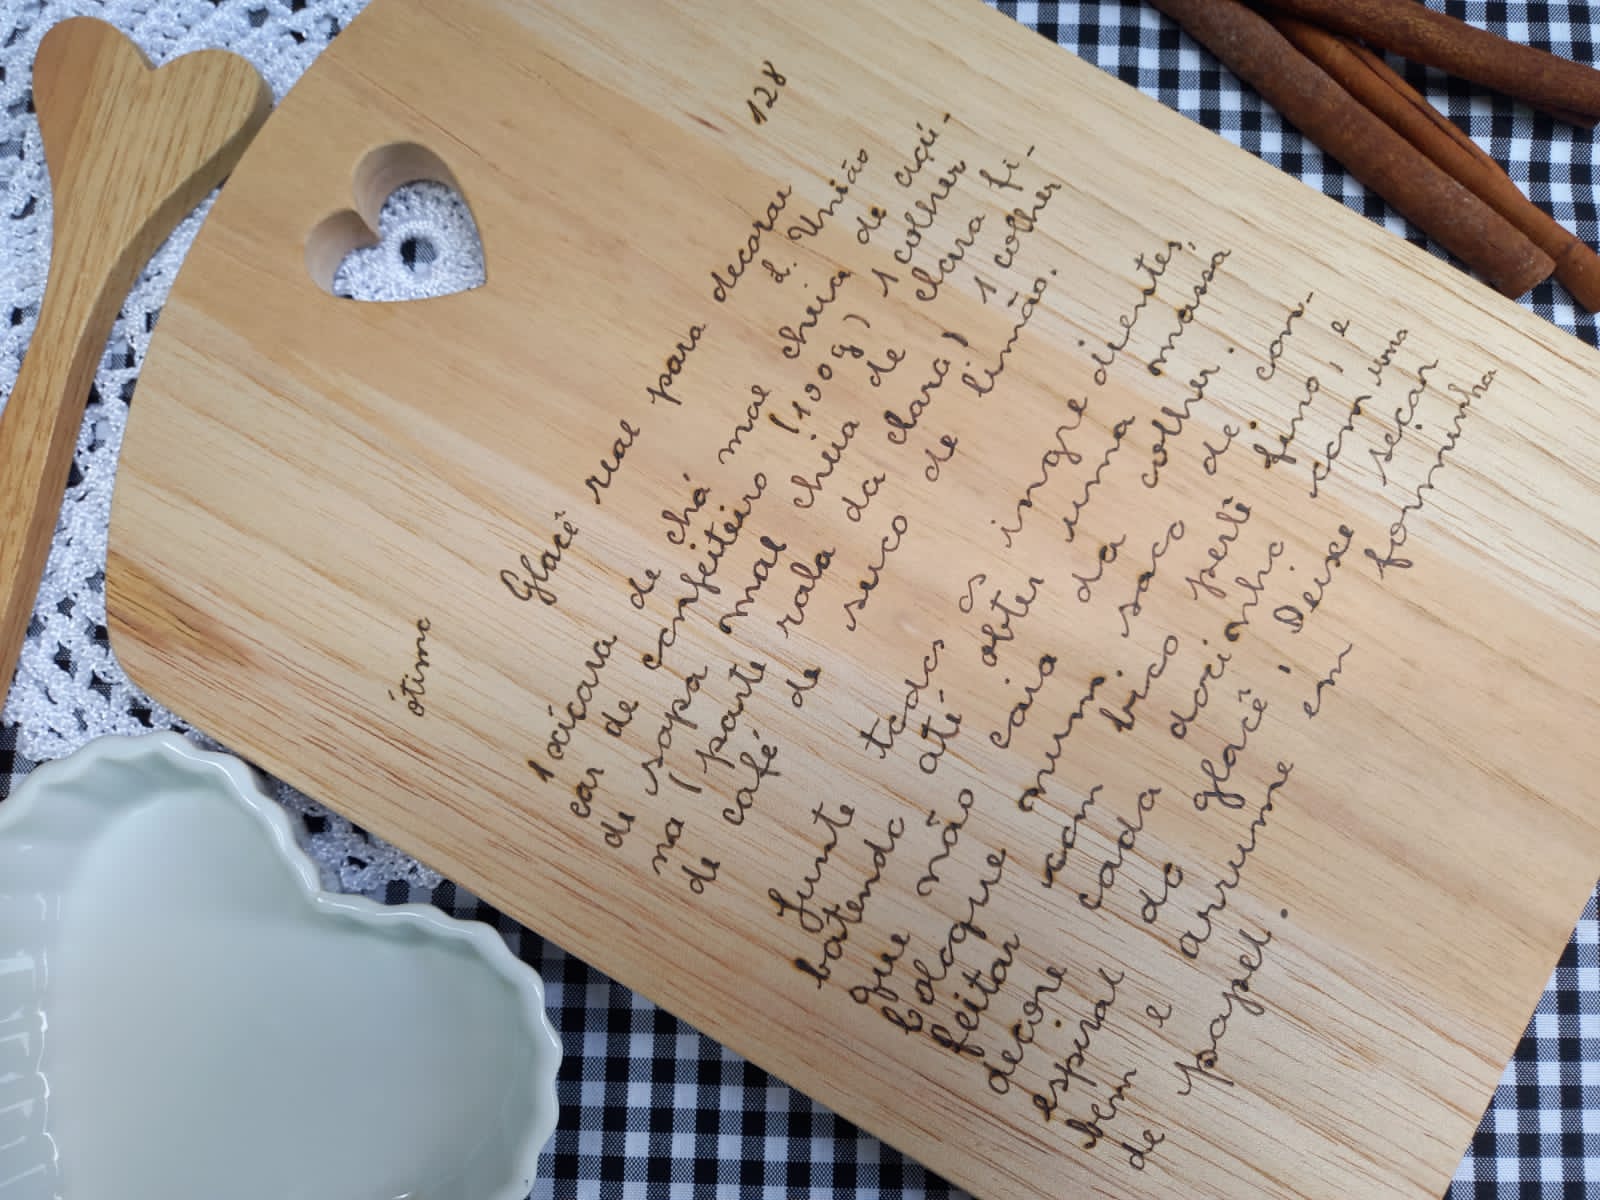 128
ótimo
Glacê real para decorar
d. União
1 xícara de chá mal cheia de açú-
car de confeiteiro (190g) 1 colher
de sopa mal cheia de clara fi-
na (parte rala da clara) 1 colher
de café de suco de limão.
Junte todos os ingredientes,
batendo até obter uma massa
que não caia da colher.
Coloque num saco de con-
feitar com bico perlê fino, e
decore cada docinho com uma
espiral do glacê, Deixe secar
bem e arrume em forminha
de papel.